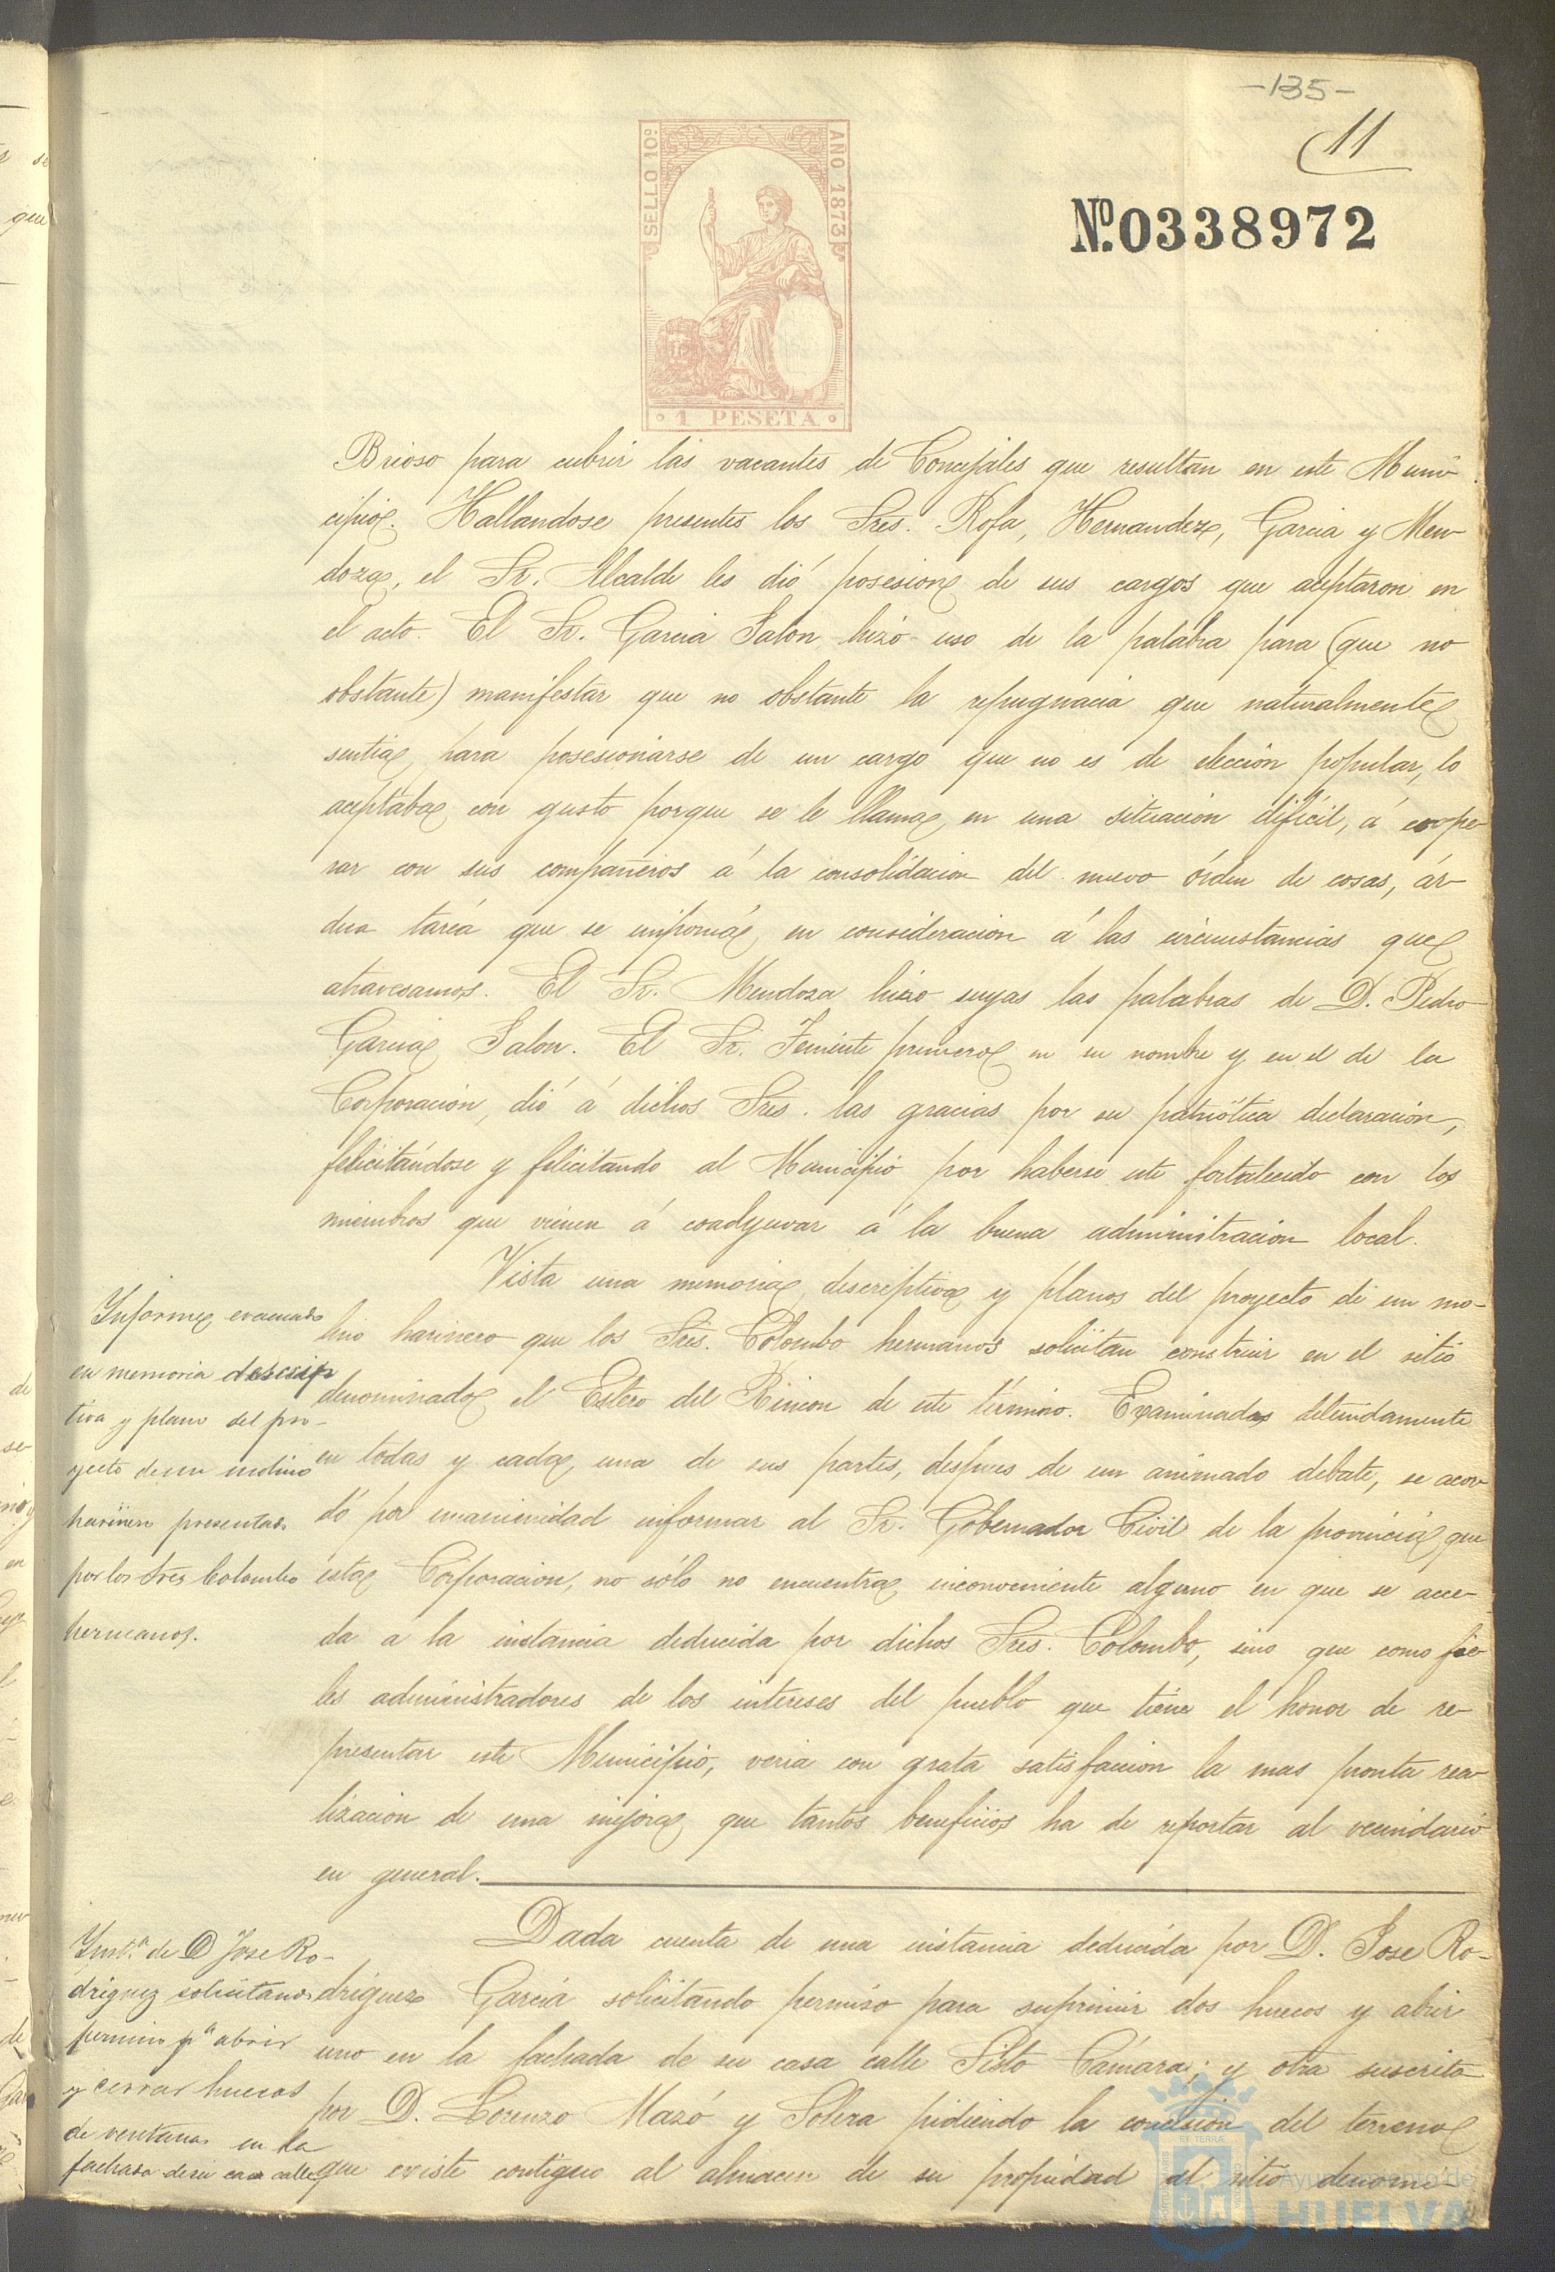 -135-
11
Nº.0338972
SELLO 10º
AÑO 1873
1 PESETA
Brioso para cubrir las vacantes de Concejales que resultan en este Muni-
cipio. Hallandose presentes los Sres. Rofa, Hernandez, Garcia y Men-
doza, el Sr. Alcalde les dió posesion de sus cargos que aceptaron en
el acto. El Sr. Garcia Salon hizo uso de la palabra para (que no
obstante) manifestar que no obstante la repugnacia que naturalmente
sentia para posesionarse de un cargo que no es de eleccion popular, lo
aceptaba con gusto porque se le llama, en una situacion dificil, á coope-
rar con sus compañeros á la consolidacion del nuevo órden de cosas, ár-
dua taréa que se imponía en consideracion á las circunstancias que
atravesamos. El Sr. Mendoza hizo suyas las palabras de D. Pedro
Garcia Salon. El Sr. Teniente primero en su nombre y en el de la
Corporacion, dió á dichos Sres. las gracias por su patriótica declaracion,
felicitándose y felicitando al Municipio por haberse este fortalecido con los
miembros que vienen á coadyuvar á la buena administracion local.
Informe evacuado
en memoria descrip
tiva y plano del pro-
yecto de un molino
harinero presentado
por los Sres Colombo
hermanos.
Vista una memoria descriptiva y planos del proyecto de un mo-
lino harinero que los Sres. Colombo hermanos solicitan construir en el sitio
denominado el Estero del Rincon de este término. Examinadas detenidamente
en todas y cada una de sus partes, despues de un animado debate, se acor-
dó por unanimidad informar al Sr. Gobernador Civil de la provincia que
ésta Corporacion, no sólo no encuentra inconveniente alguno en que se acce-
da a la instancia deducida por dichos Sres. Colombo, sino que como fie-
les administradores de los intereses del pueblo que tiene el honor de re-
presentar este Municipio, veria con grata satisfaccion la mas pronta rea-
lizacion de una mejora que tantos beneficios ha de reportar al vecindario
en general.
Inst.ª de D Jose Ro-
driguez solicitando
permiso pª abrir
y cerrar huecos
de ventanas en la
fachada de su casa calle
Dada cuenta de una instancia deducida por D. Jose Ro-
driguez Garcia solicitando permiso para suprimir dos huecos y abrir
uno en la fachada de su casa calle Sisto Cámara; y otra suscrita
por D. Lorenzo Mazó y Solera pidiendo la concesion del terreno
que existe contiguo al almacen de su propiedad al sitio denomi-
Ayuntamiento de
HUELVA